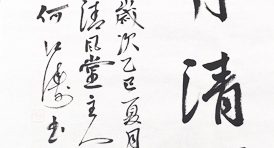 清
歲次乙巳夏月
清風堂主人
何江濤书